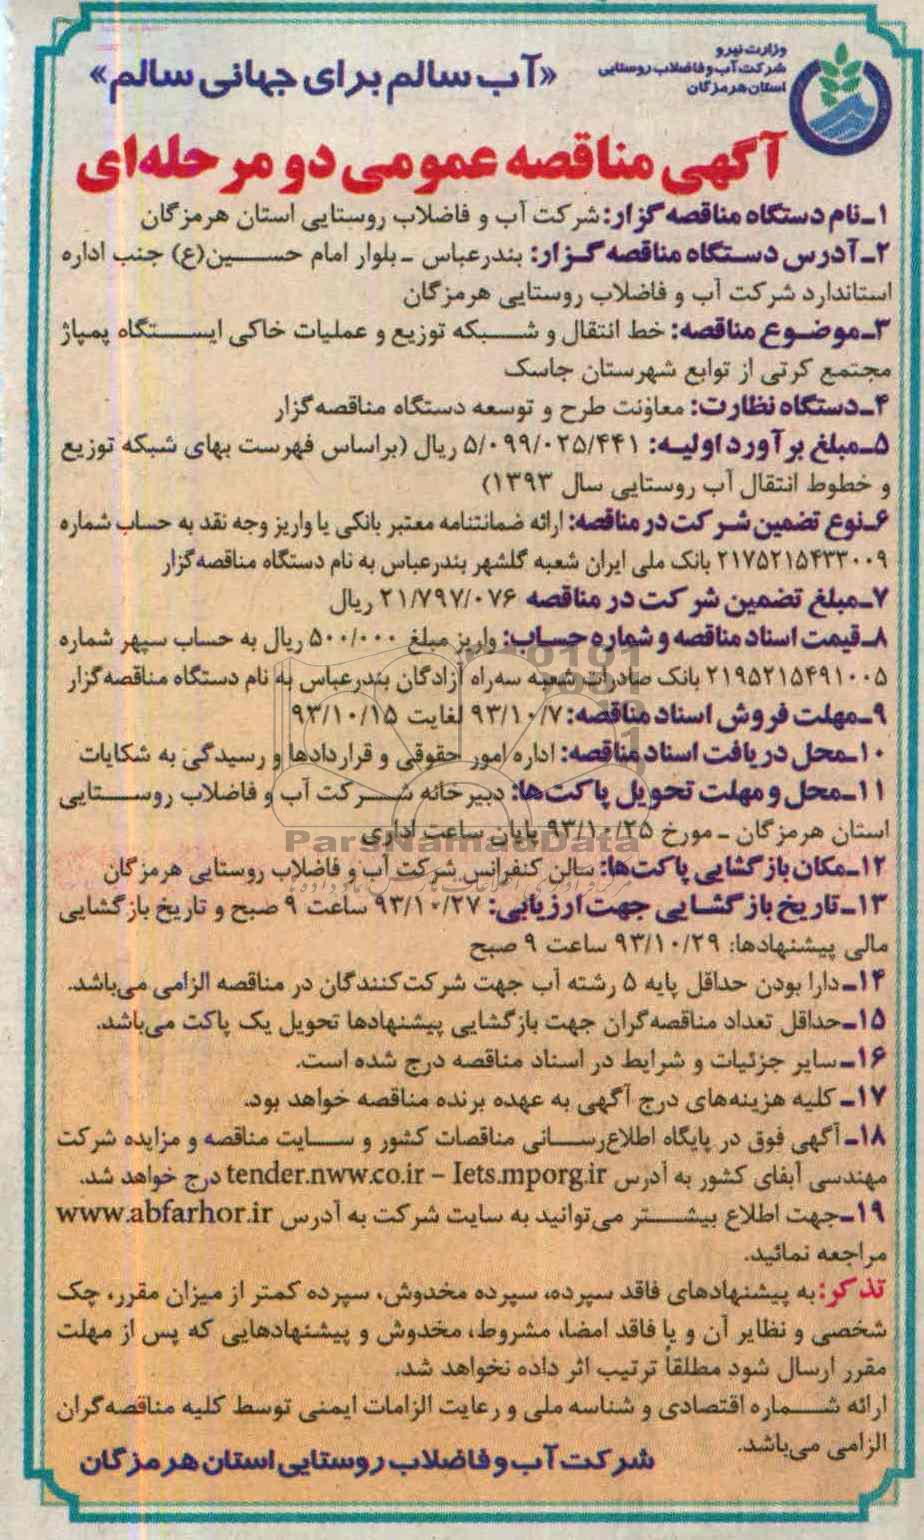 وزارت نیرو
شرکت آب و فاضلاب روستایی
استان هرمزگان
«آب سالم برای جهانی سالم»
آگهی مناقصه عمومی دو مرحله‌ای
۱ـ نام دستگاه مناقصه گزار: شرکت آب و فاضلاب روستایی استان هرمزگان
۲ـ آدرس دستگاه مناقصه گزار: بندرعباس ـ بلوار امام حسین(ع) جنب اداره
استاندارد شرکت آب و فاضلاب روستایی هرمزگان
۳ـ موضوع مناقصه: خط انتقال و شبکه توزیع و عملیات خاکی ایستگاه پمپاژ
مجتمع کرتی از توابع شهرستان جاسک
۴ـ دستگاه نظارت: معاونت طرح و توسعه دستگاه مناقصه گزار
۵ـ مبلغ برآورد اولیه: ۵/۰۹۹/۰۲۵/۴۴۱ ریال (براساس فهرست بهای شبکه توزیع
و خطوط انتقال آب روستایی سال ۱۳۹۳)
۶ـ نوع تضمین شرکت در مناقصه: ارائه ضمانتنامه معتبر بانکی یا واریز وجه نقد به حساب شماره
۲۱۷۵۲۱۵۴۳۳۰۰۹ بانک ملی ایران شعبه گلشهر بندرعباس به نام دستگاه مناقصه گزار
۷ـ مبلغ تضمین شرکت در مناقصه ۲۱/۷۹۷/۰۷۶ ریال
۸ـ قیمت اسناد مناقصه و شماره حساب: واریز مبلغ ۵۰۰/۰۰۰ ریال به حساب سپهر شماره
۲۱۹۵۲۱۵۴۹۱۰۰۵ بانک صادرات شعبه سه‌راه آزادگان بندرعباس به نام دستگاه مناقصه گزار
۹ـ مهلت فروش اسناد مناقصه: ۹۳/۱۰/۷ لغایت ۹۳/۱۰/۱۵
۱۰ـ محل دریافت اسناد مناقصه: اداره امور حقوقی و قراردادها و رسیدگی به شکایات
۱۱ـ محل و مهلت تحویل پاکت‌ها: دبیرخانه شرکت آب و فاضلاب روستایی
استان هرمزگان ـ مورخ ۹۳/۱۰/۲۵ پایان ساعت اداری
ParsNamadData
۱۲ـ مکان بازگشایی پاکت‌ها: سالن کنفرانس شرکت آب و فاضلاب روستایی هرمزگان
۱۳ـ تاریخ بازگشایی جهت ارزیابی: ۹۳/۱۰/۲۷ ساعت ۹ صبح و تاریخ بازگشایی
مالی پیشنهادها: ۹۳/۱۰/۲۹ ساعت ۹ صبح
۱۴ـ دارا بودن حداقل پایه ۵ رشته آب جهت شرکت‌کنندگان در مناقصه الزامی می‌باشد.
۱۵ـ حداقل تعداد مناقصه‌گران جهت بازگشایی پیشنهادها تحویل یک پاکت می‌باشد.
۱۶ـ سایر جزئیات و شرایط در اسناد مناقصه درج شده است.
۱۷ـ کلیه هزینه‌های درج آگهی به عهده برنده مناقصه خواهد بود.
۱۸ـ آگهی فوق در پایگاه اطلاع‌رسانی مناقصات کشور و سایت مناقصه و مزایده شرکت
مهندسی آبفای کشور به آدرس tender.nww.co.ir – Iets.mporg.ir درج خواهد شد.
۱۹ـ جهت اطلاع بیشتر می‌توانید به سایت شرکت به آدرس www.abfarhor.ir
مراجعه نمائید.
تذکر: به پیشنهادهای فاقد سپرده، سپرده مخدوش، سپرده کمتر از میزان مقرر، چک
شخصی و نظایر آن و یا فاقد امضا، مشروط، مخدوش و پیشنهادهایی که پس از مهلت
مقرر ارسال شود مطلقاً ترتیب اثر داده نخواهد شد.
ارائه شماره اقتصادی و شناسه ملی و رعایت الزامات ایمنی توسط کلیه مناقصه‌گران
الزامی می‌باشد.
شرکت آب و فاضلاب روستایی استان هرمزگان